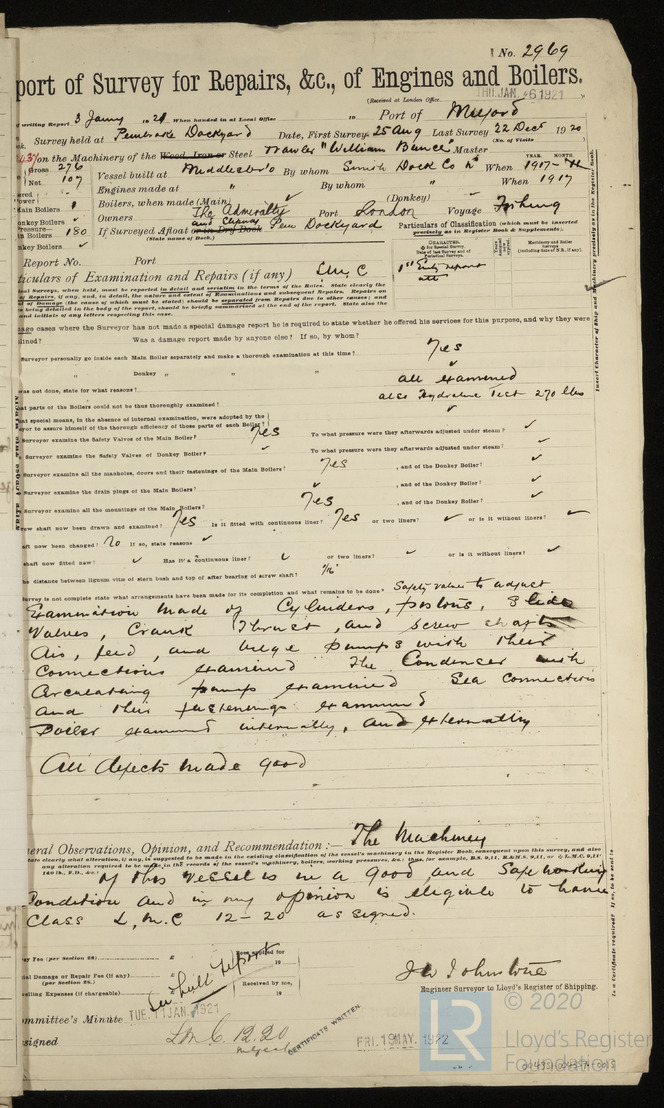 No. 2969
port of Survey for Repairs, &c., of Engines and Boilers.
(Received at London Office THU. JAN. 6 1921
writing Report 3 Jany 1921 When handed in at Local Office 19 Port of Milford
Survey held at Pembroke Dockyard Date, First Survey 25 Aug Last Survey 22 Decr 1920
(No. of Visits
on the Machinery of the Wood, Iron or Steel Trawler "William Bunce" Master
Gross 276
Net 107
Vessel built at Middlesbro By whom Smith Dock Co Ld When 1917
YEAR. MONTH.
Engines made at " By whom " When 1917
Boilers, when made (Main) (Donkey)
Main Boilers 1
Donkey Boilers
Owners The Admiralty Port London Voyage Fishing
Pressure—
Boilers 180
Donkey Boilers
If Surveyed Afloat or in Dry Dock Pem Dockyard
(State name of Dock.)
Particulars of Classification (which must be inserted
precisely as in Register Book & Supplements).
Report No. Port
Particulars of Examination and Repairs (if any) LMC
1st Entry report
age cases where the Surveyor has not made a special damage report he is required to state whether he offered his services for this purpose, and why they were
lined? Was a damage report made by anyone else? If so, by whom?
Surveyor personally go inside each Main Boiler separately and make a thorough examination at this time? Yes
" Donkey " " "
was not done, state for what reasons? all examined
at parts of the Boilers could not be thoroughly examined? also Hydraulic Test 270 lbs
at special means, in the absence of internal examination, were adopted by the
yor to assure himself of the thorough efficiency of those parts of each Boiler?
Surveyor examine the Safety Valves of the Main Boiler? Yes To what pressure were they afterwards adjusted under steam?
Surveyor examine the Safety Valves of Donkey Boiler? To what pressure were they afterwards adjusted under steam?
Surveyor examine all the manholes, doors and their fastenings of the Main Boilers? Yes , and of the Donkey Boiler?
Surveyor examine the drain plugs of the Main Boilers? , and of the Donkey Boiler?
Surveyor examine all the mountings of the Main Boilers? Yes , and of the Donkey Boiler?
rew shaft now been drawn and examined? Yes Is it fitted with continuous liner? Yes or two liners? or is it without liners?
aft now been changed? No If so, state reasons
shaft now fitted new? Has it a continuous liner? or two liners? or is it without liners?
the distance between lignum vitæ of stern bush and top of after bearing of screw shaft? 1/16"
Survey is not complete state what arrangements have been made for its completion and what remains to be done? Safety valve to adjust
Examination made of Cylinders, pistons, Slide
Valves, Crank Thrust, and screw shafts
Air, feed, and bilge pumps with their
connections examined The Condenser with
Circulating pump examined Sea Connections
and their fastenings examined
Boiler examined internally, and externally
All defects made good
General Observations, Opinion, and Recommendation:— The Machinery
of this vessel is in a good and Safe working
condition and in my opinion is eligible to have
Class L.M.C 12-20 assigned.
Survey Fee (per Section 28) £
Special Damage or Repair Fee (if any) £
(per Section 28.)
Travelling Expenses (if chargeable) £
Fees applied for
19
Received by me,
19
See hull report
J W Johnstone
Engineer Surveyor to Lloyd's Register of Shipping.
Committee's Minute TUE. 11 JAN. 1921
Assigned LMC 12.20
CERTIFICATE WRITTEN.
FRI. 19 MAY. 1922
LR
© 2020
Lloyd's Register
Foundation